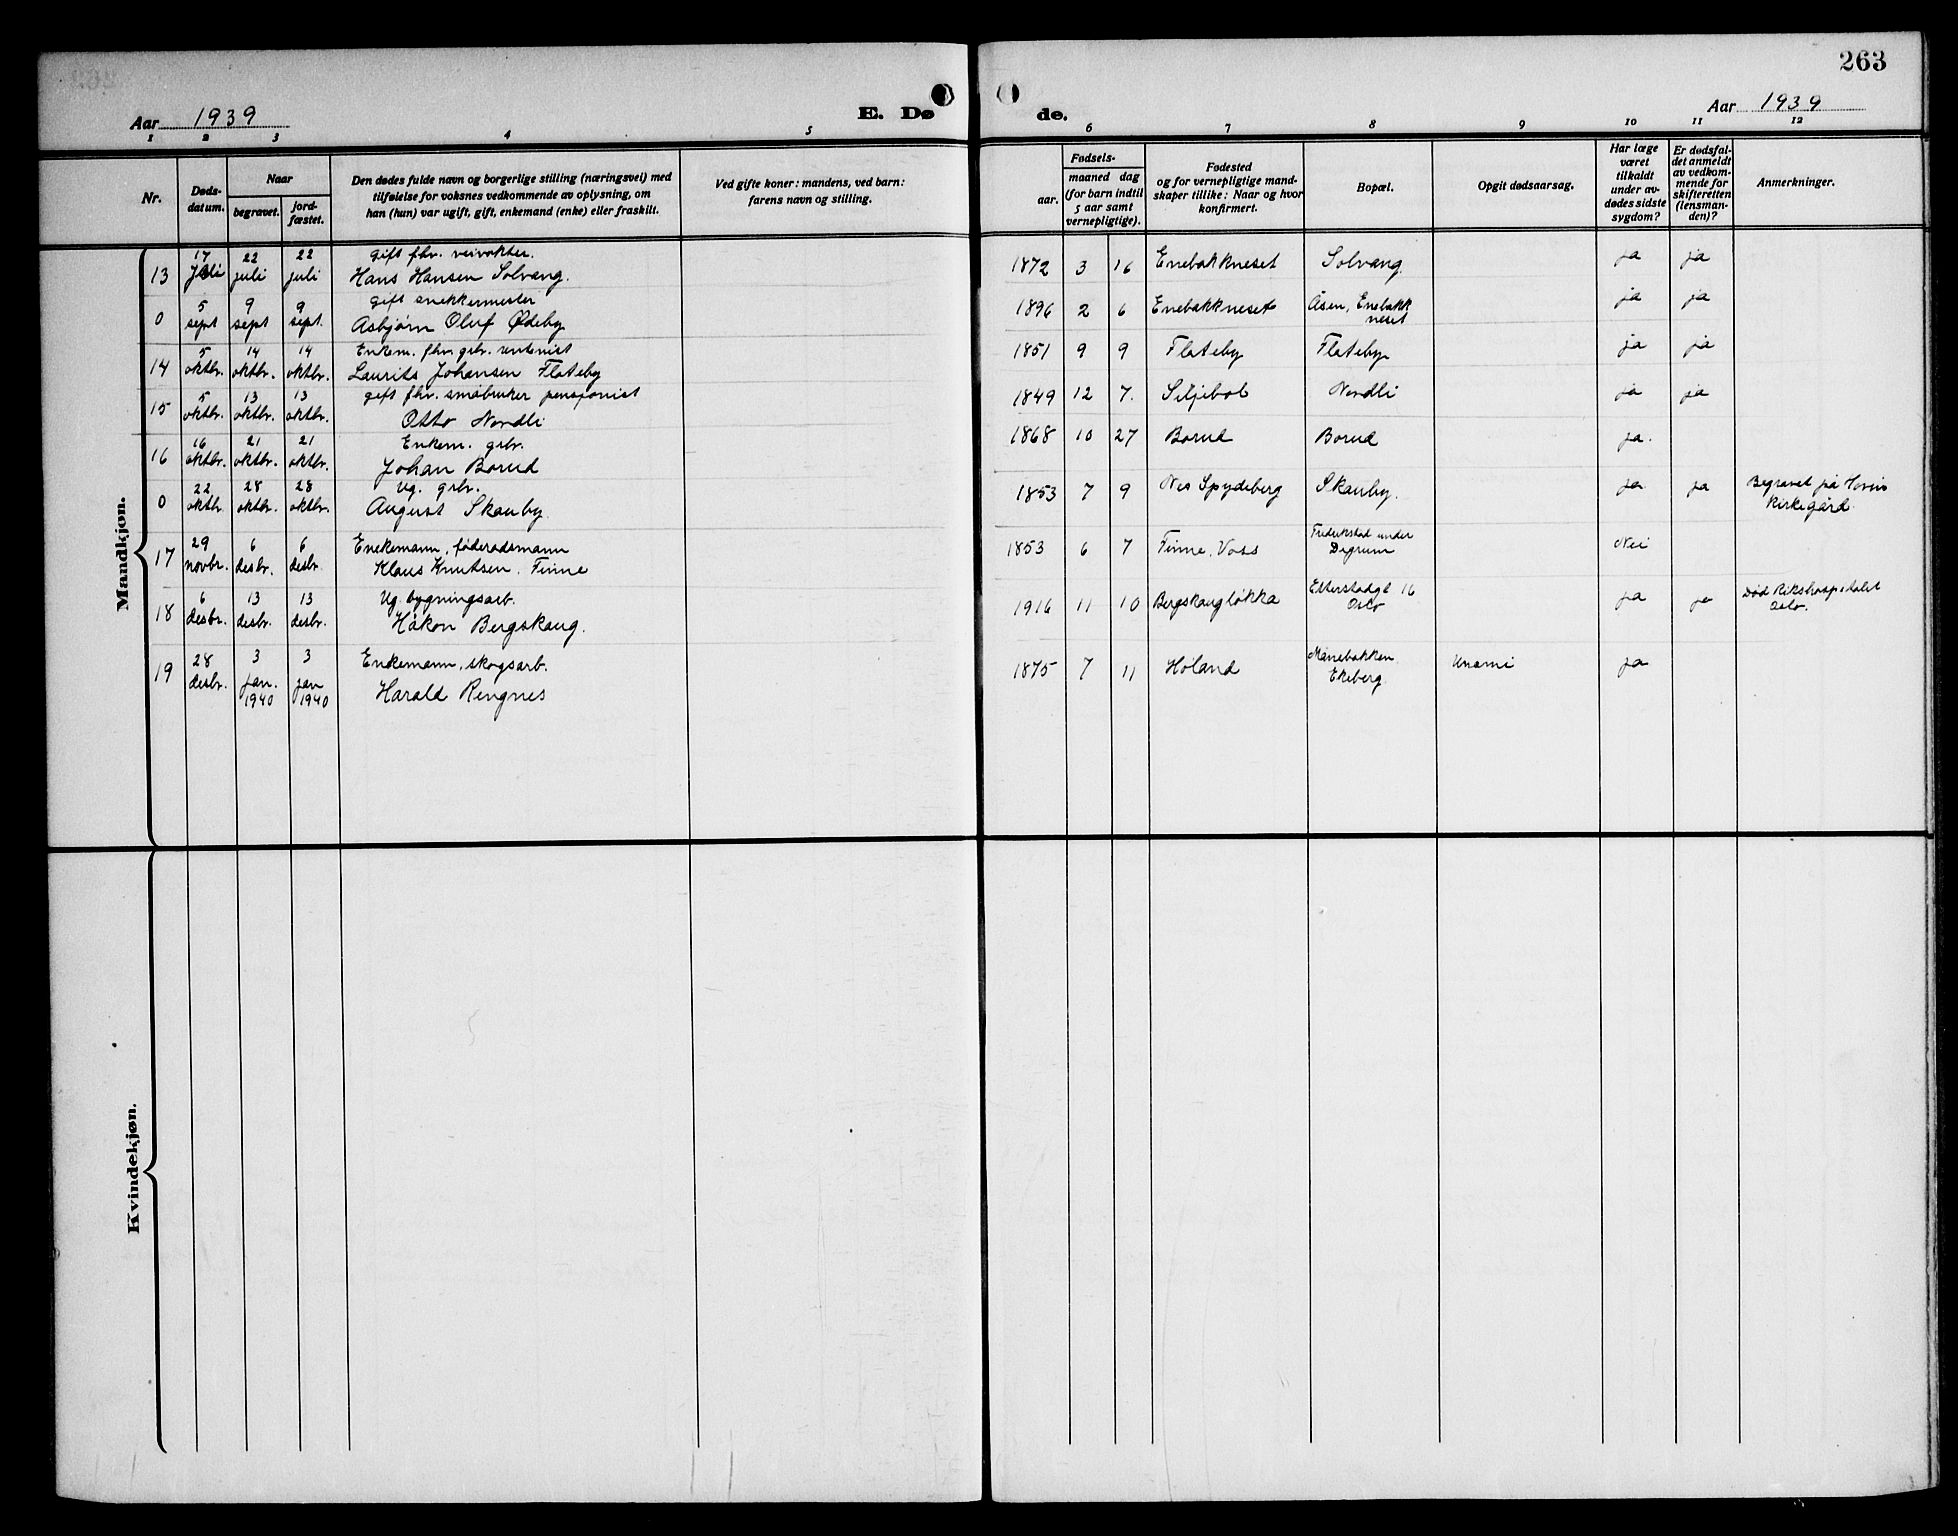 263
Aar 1939
E. Dø
de.
Aar 1939
1 2 3 4 5 6 7 8 9 10 11 12
Nr.
Døds-
datum.
Naar
begravet.
jord-
fæstet.
Den dødes fulde navn og borgerlige stilling (næringsvei) med
tilføielse for voksnes vedkommende av oplysning, om
han (hun) var ugift, gift, enkemand (enke) eller fraskilt.
Ved gifte koner: mandens, ved barn:
farens navn og stilling.
Fødsels-
aar.
maaned dag
(for barn indtil
5 aar samt
vernepligtige).
Fødested
og for vernepligtige mand-
skaper tillike: Naar og hvor
konfirmert.
Bopæl.
Opgit dødsaarsag.
Har læge
været
tilkaldt
under av-
dødes sidste
sygdom?
Er dødsfal-
det anmeldt
av vedkom-
mende for
skifteretten
(lensman-
den)?
Anmerkninger.
Mandkjøn.
17 22 22 gift fhv. veivokter.
13 juli juli juli Hans Hansen Solvang. 1872 3 16 Enebakkneset Solvang. ja ja
5 9 9 gift snekkermester
0 sept sept sept. Asbjørn Oluf Ødeby 1896 2 6 Enebakkneset Åsen, Enebakk ja ja
neset
5 14 14 Enkem. fhv. grbr. rentenist
14 oktbr. oktbr. oktbr. Laurits Johansen Flateby 1851 9 9 Flateby Flateby ja ja
5 13 13 gift fhv. småbruker pensjonist
15 oktbr. oktbr. oktbr. Otto Nordli 1849 12 7. Siljebol Nordli ja ja
16 21 21 Enkem. grbr.
16 oktbr. oktbr. oktbr. Johan Borud 1868 10 27 Borud Borud ja.
22 28 28 Ug. grbr.
0 oktbr. oktbr. oktbr. August Skauby 1853 7 9 Nes Spydeberg Skauby. ja ja Begravet på Hovin
Kirkegård.
29 6 6 Enekemann, føderådsmann Fredrikstad under
17 novbr. desbr. desbr. Klaus Knutsen Finne 1853 6 7 Finne, Voss Nei
6 13 13 Ug. bygningsarb. Etterstadgt 16
18 desbr. desbr. desbr. Håkon Bergskaug. 1916 11 10 Bergskaugløkka Oslo ja ja Død Rikshospitalet
Oslo.
28 3 3 Enkemann, skogsarb. Månebakken
19 desbr. jan. jan Harald Rengnes 1875 7 11 Høland Ekeberg Uremi ja
1940 1940
Kvindekjøn.